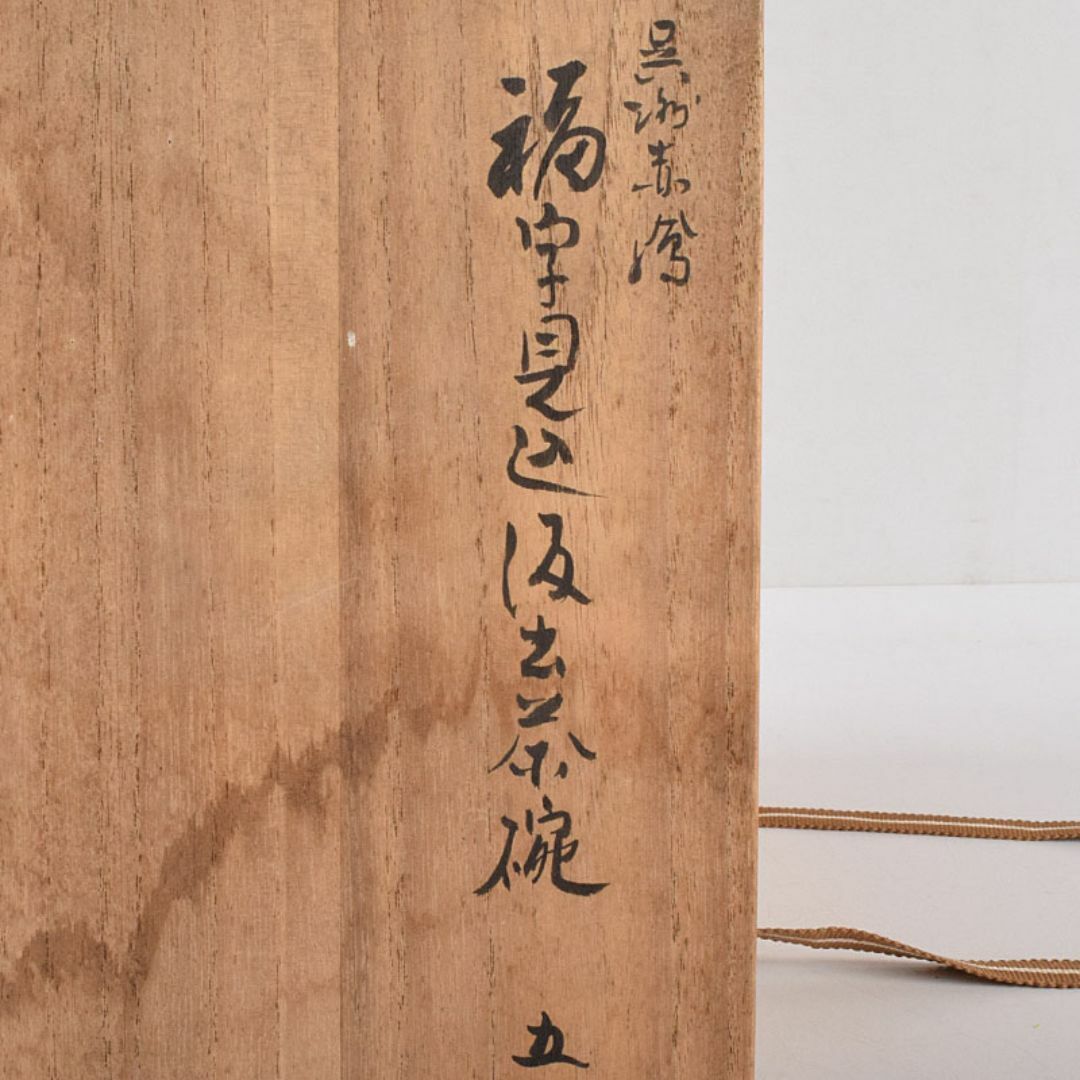 呉洲赤濤
福字見込汲出茶碗 五